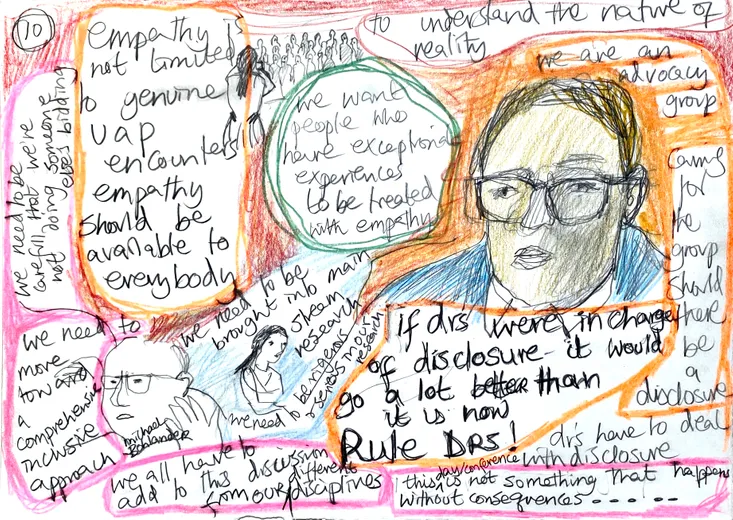 10
empathy is
not limited
to genuine
uap
encounters
empathy
should be
available to
everybody
we want
people who
have exceptional
experiences
to be treated
with empathy
to understand the nature of
reality
we are an
advocacy
group
caring
for
the
group
should
there
be
a
disclosure
we need to be
carefull that we're
not doing someone
elses bidding
we need to
more
toward
a
comprehensive
inclusive
approach
michael
we need to be
brought into main
steam
research
we need to be rigorous
research
if drs were in charge
of disclosure it would
go a lot better than
it is now
Rule DRS!
drs have to deal
with disclosure
we all have to
add to this discussion
from our different
disciplines
law conference
this is not something that happens
without consequences......